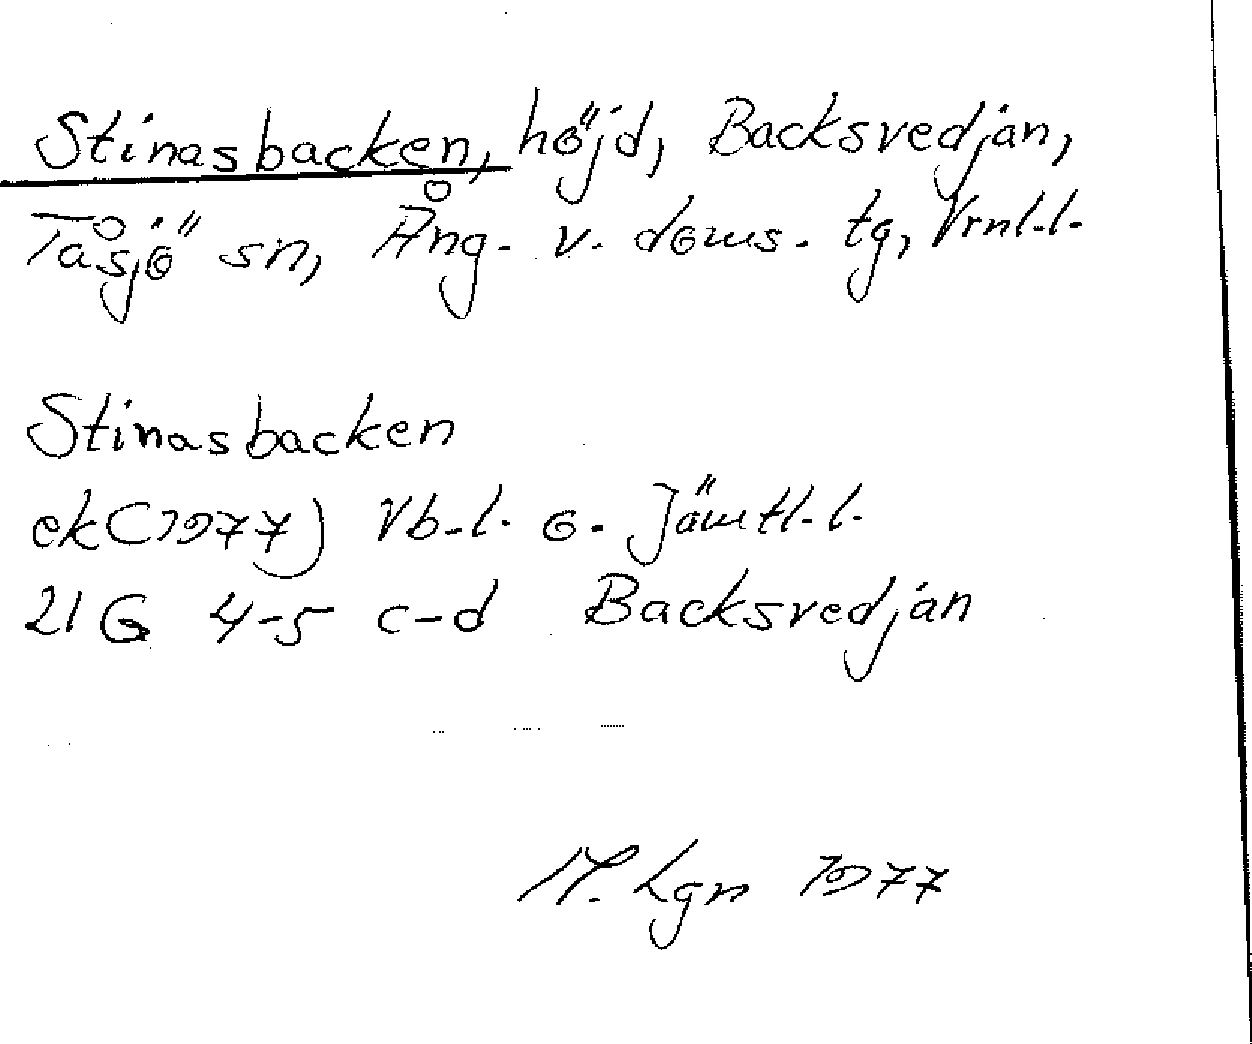 Stinasbacken, höjd, Backsvedjan,
Tåsjö sn, Ång. v. doms. tg, Vrnl.l.
Stinasbacken
ek (1977) Vb-l. o. Jämtl.l.
21G 4-5 c-d Backsvedjan
M. Lgn 1977